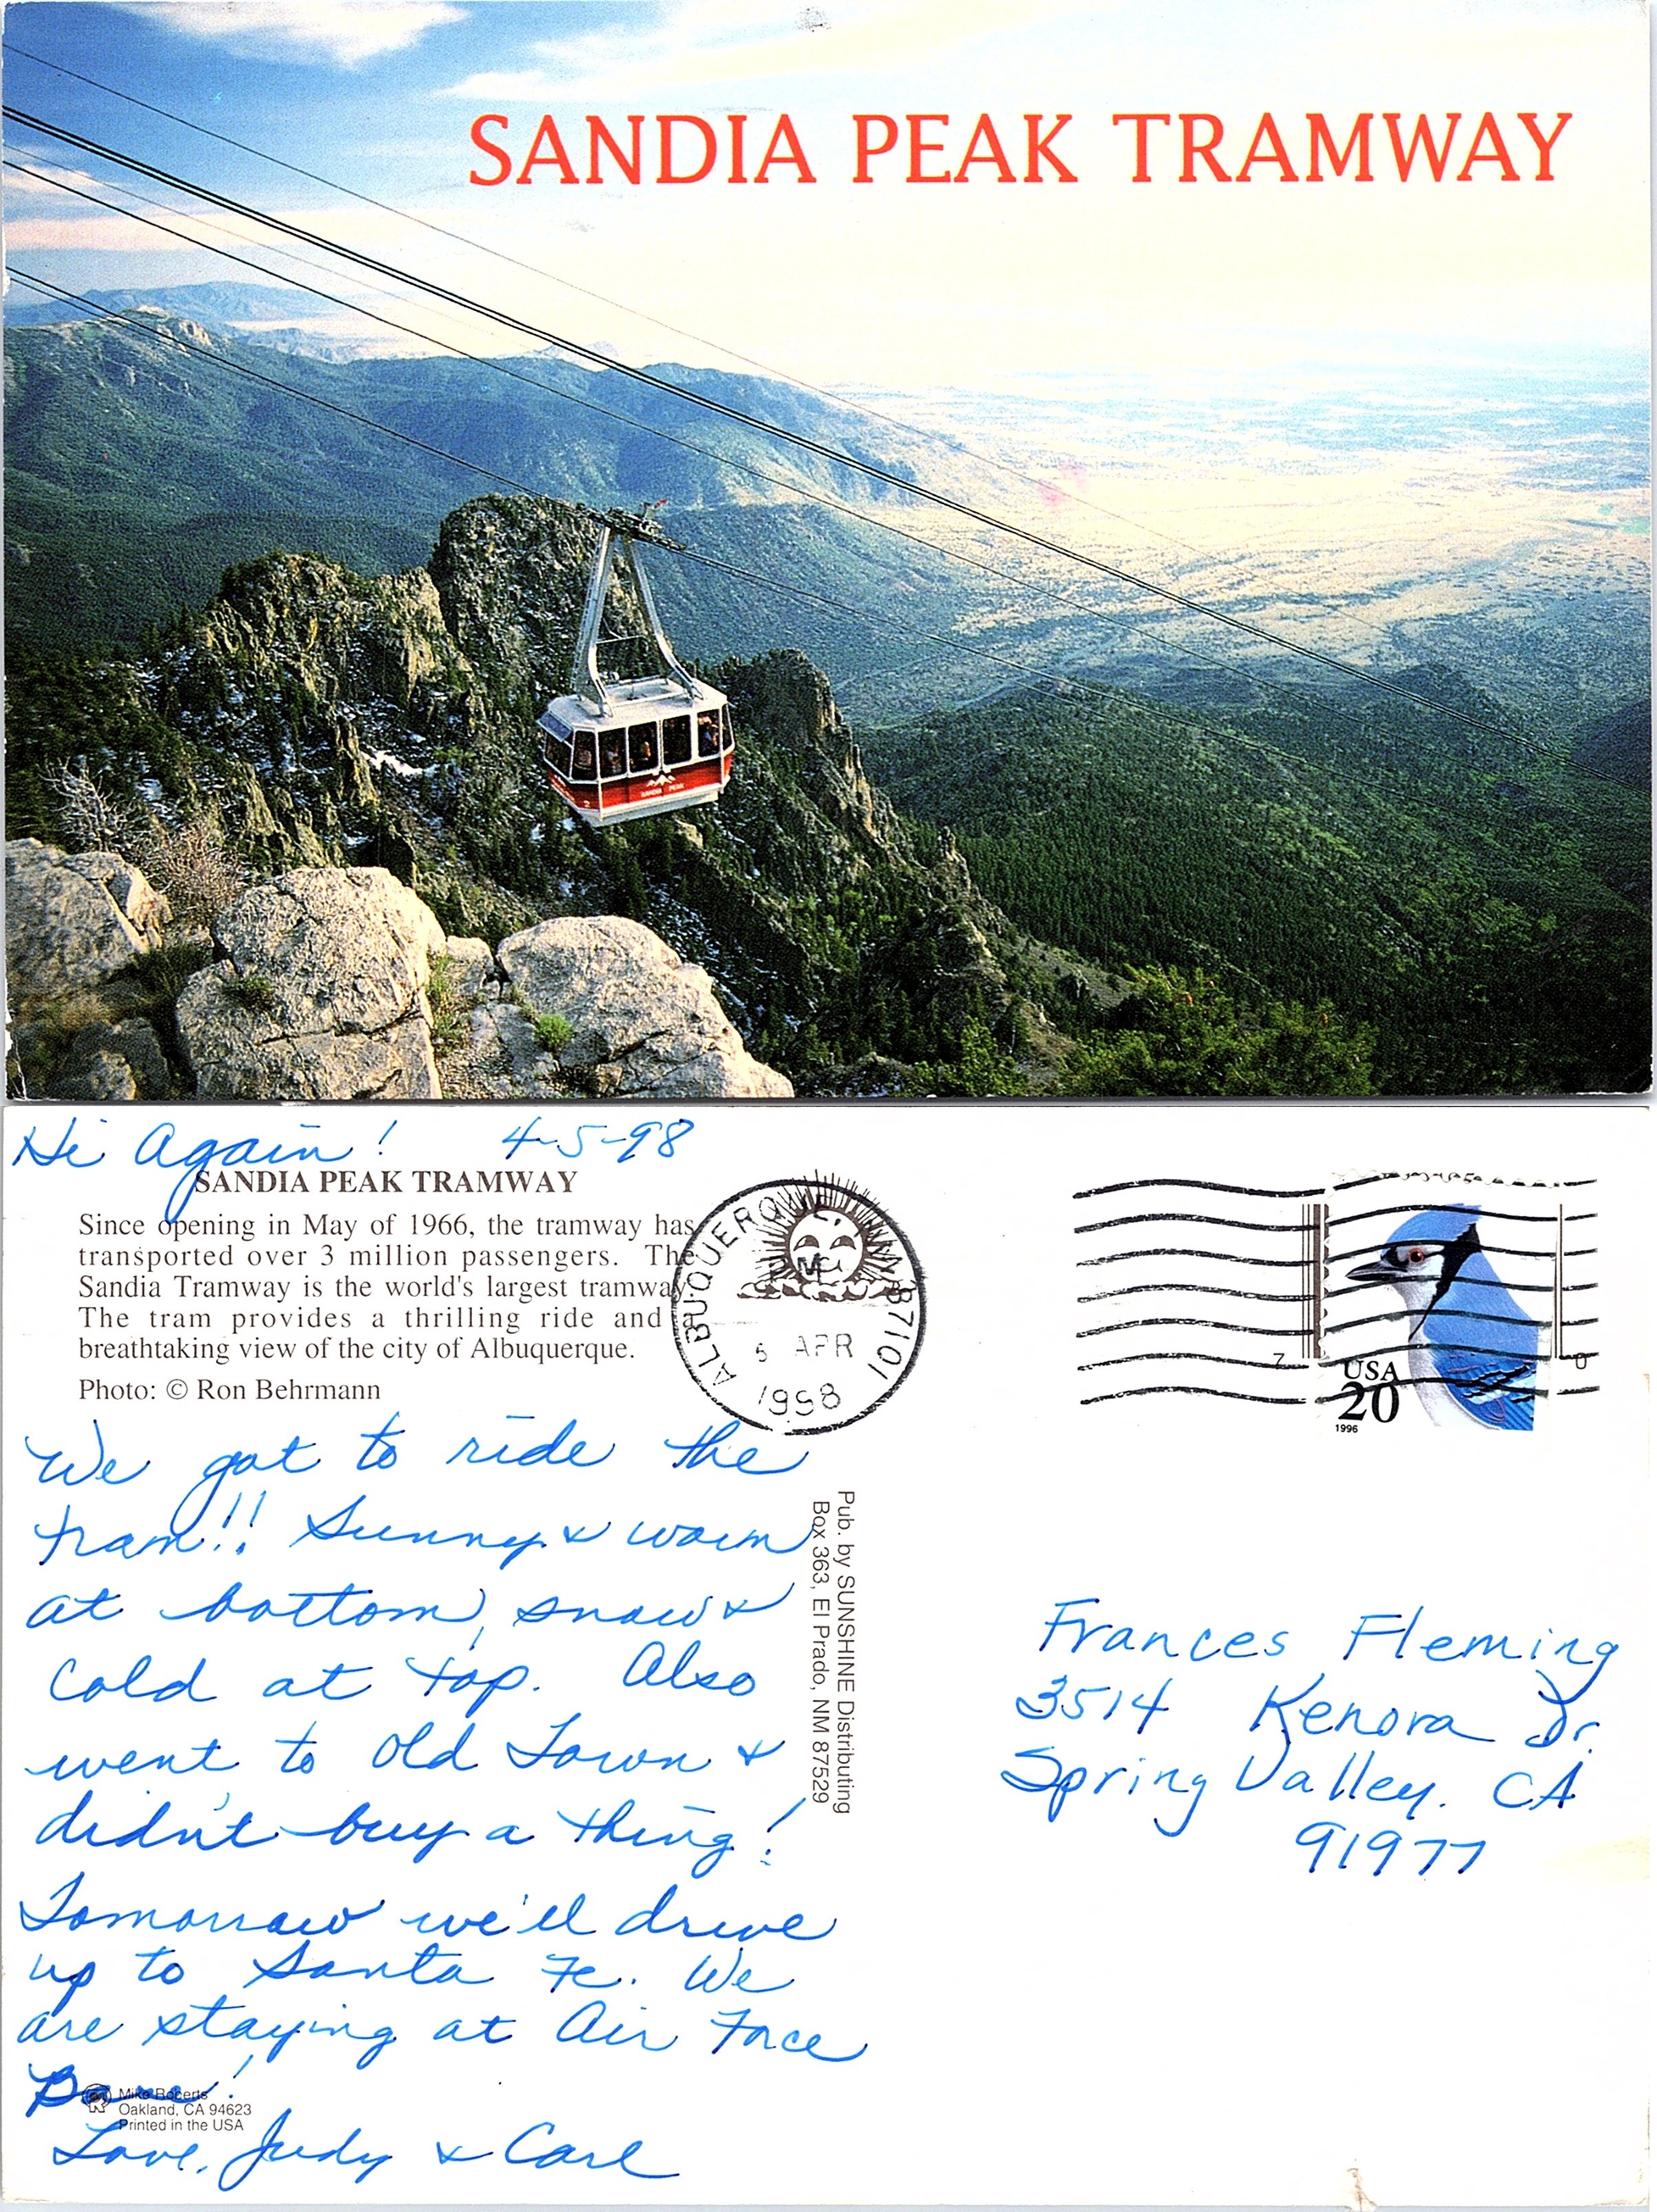 SANDIA PEAK TRAMWAY
SANDIA PEAK
2
Hi Again! 4-5-98
SANDIA PEAK TRAMWAY
Since opening in May of 1966, the tramway has
transported over 3 million passengers. The
Sandia Tramway is the world's largest tramway
The tram provides a thrilling ride and a
breathtaking view of the city of Albuquerque.
Photo: © Ron Behrmann
ALBUQUERQUE, NM 87101
MC
5 APR
1998
USA
20
1996
We got to ride the
tram!! Sunny & warm
at bottom, snow &
cold at top. Also
went to Old Town &
didn't buy a thing!
Tomorrow we'll drive
up to Santa Fe. We
are staying at Air Force
Base!
Love, Judy & Carl
Pub. by SUNSHINE Distributing
Box 363, El Prado, NM 87529
Mike Roberts
Oakland, CA 94623
Printed in the USA
Frances Fleming
3514 Kenora Dr.
Spring Valley, CA
91977